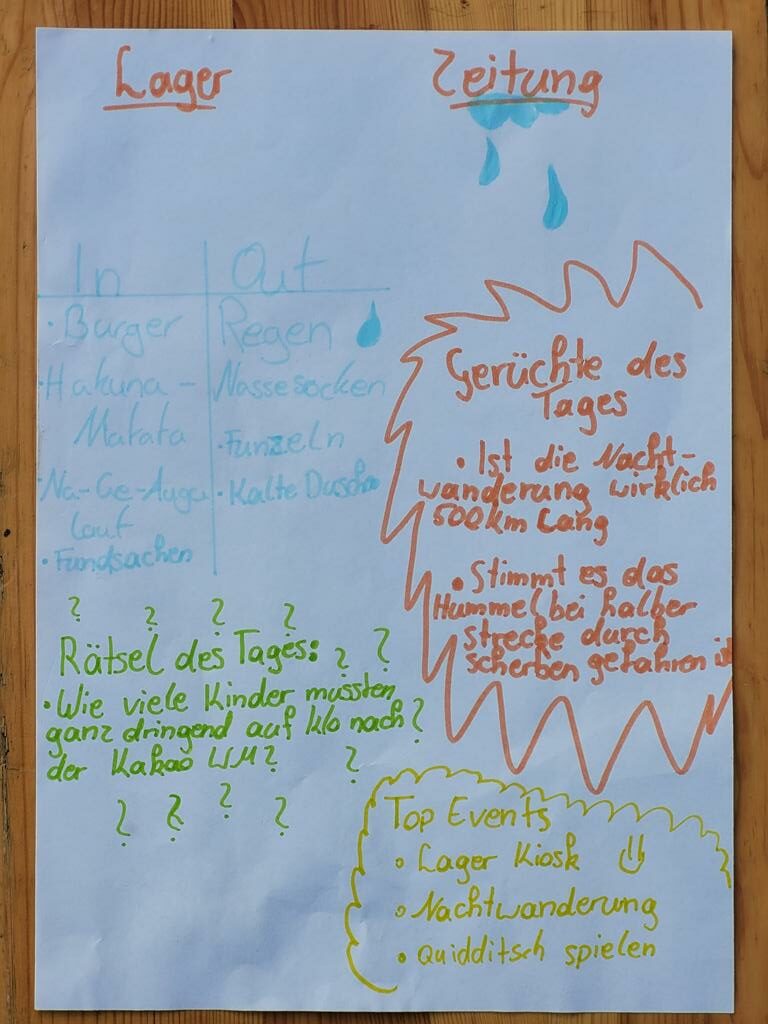 Lager Zeitung
In
• Burger
• Hakuna -
Matata
• Na-Ge-Auga
lauf
• Fundsachen
Out
Regen
Nassesocken
• Funzeln
• Kalte Dusche
Gerüchte des
Tages
• Ist die Nacht-
wanderung wirklich
500km Lang
• Stimmt es das
Hummel bei halber
strecke durch
scherben gefahren ist
? ? ? ?
Rätsel des Tages: ? ?
• Wie viele Kinder mussten
ganz dringend auf klo nach ?
der Kakao WM? ?
? ? ? ?
Top Events
• Lager Kiosk
• Nachtwanderung
• Quidditsch spielen